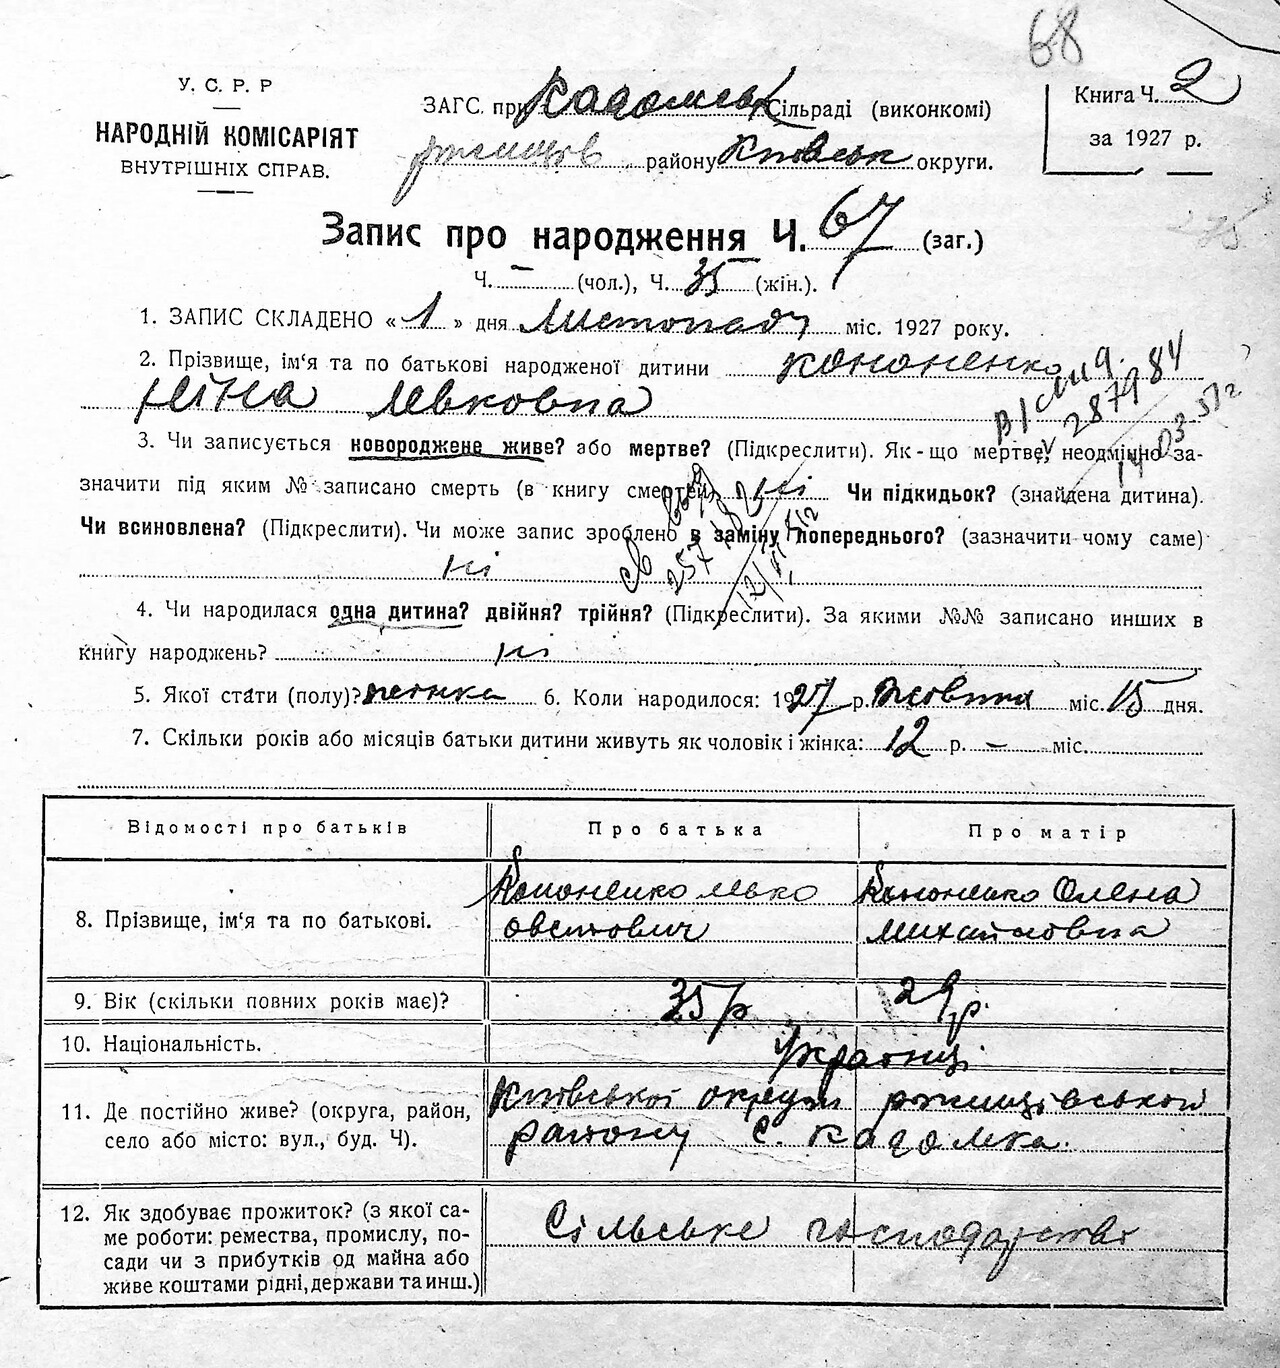 68
У. С. Р. Р
НАРОДНІЙ КОМІСАРІЯТ
ВНУТРІШНІХ СПРАВ.
ЗАГС. при Кадомськ Сільраді (виконкомі)
ржищів району Київськ округи.
Книга Ч. 2
за 1927 р.
275
Запис про народження Ч. 67 (заг.)
Ч. – (чол.), Ч. 35 (жін.).
1. ЗАПИС СКЛАДЕНО « 1 » дня Листопаду міс. 1927 року.
2. Прізвище, ім‘я та по батькові народженої дитини Кононенко
Ніна Левковна
287984
3. Чи записується новороджене живе? або мертве? (Підкреслити). Як-що мертве, неодмінно за-
значити під яким № записано смерть (в книгу смертей) ні Чи підкидьок? (знайдена дитина).
Чи всиновлена? (Підкреслити). Чи може запис зроблено в заміну попереднього? (зазначити чому саме)
ні
4. Чи народилася одна дитина? двійня? трійня? (Підкреслити). За якими №№ записано инших в
книгу народжень? ні
5. Якої стати (полу)? жінка 6. Коли народилося: 1927 р. Жовтня міс. 15 дня.
7. Скільки років або місяців батьки дитини живуть як чоловік і жінка: 12 р. – міс.
Відомості про батьків Про батька Про матір
8. Прізвище, ім‘я та по батькові.
Кононенко Левко
Овстович
Кононенко Олена
Михайловна
9. Вік (скільки повних років має)? 35 р 29 р.
10. Національність. Українці
11. Де постійно живе? (округа, район,
село або місто: вул., буд. Ч).
Київської округи ржищівської
району с. Кадомка.
12. Як здобуває прожиток? (з якої са-
ме роботи: ремества, промислу, по-
сади чи з прибутків од майна або
живе коштами рідні, держави та инш.)
Сільське господарство